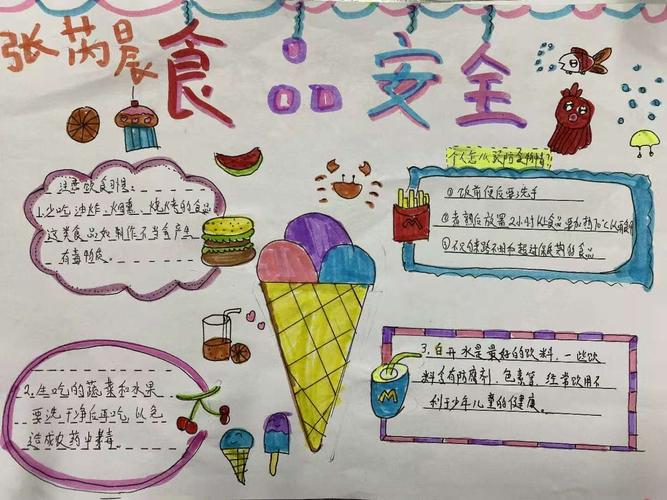 张芮晨
食品安全
注意饮食卫生:
1.少吃油炸、烟熏、烧烤的食品
这类食品如制作不当会产生
有毒物质。
个人怎么预防食物中毒?
①饭前便后要洗手
②者朝后放置2小时以上食品要加热70℃以
③不吃来路不明和超过保质期的食品
2.生吃的蔬菜和水果
要洗干净后再吃,以免
造成农药中毒。
3.白开水是最好的饮料,一些饮
料含有防腐剂、色素等,经常饮用不
利于少年儿童的健康。
M
M